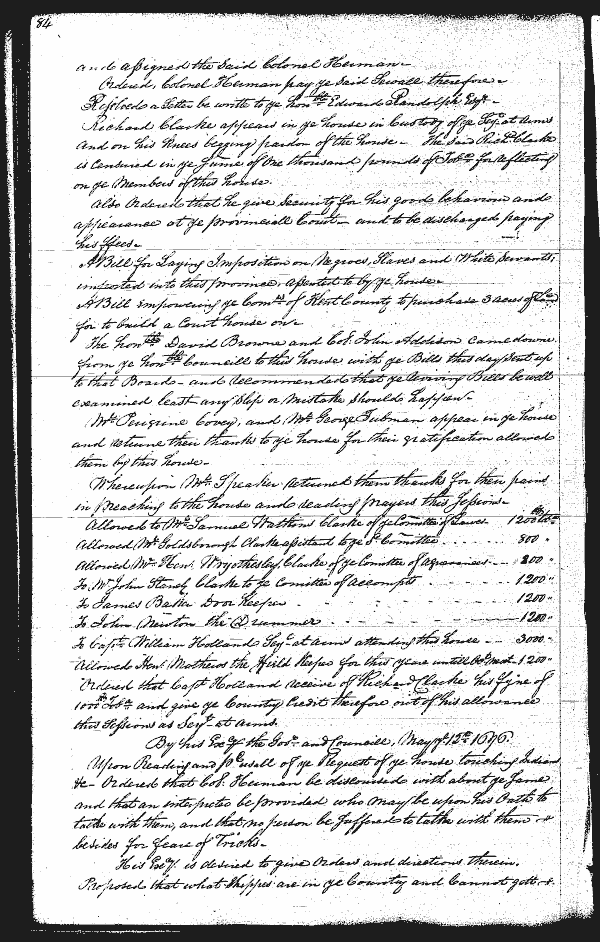 84
and assigned the Said Colonel Herman -
Ordered, Colonel Herman pay ye Said Sewall therefore -
Resolved a Letter be wrote to ye honble Edward Randolph Esqr -
Richard Clarke appears in ye house in Custody of ye Sejt at Arms
and on his Knees begging pardon of the house - The said Richd Clarke
is Censured in ye fume of One thousand pounds of Tobco for reflecting
on ye Members of this house.
Also Ordered that he give Security for his good behaviour and
appearance at ye provinciall Court - and to be discharged paying
his ffees -
A Bill for Laying Imposition on Negroes, Slaves and White Servants,
imported into this province, assented to by ye house -
A Bill impowering ye Comrs of Kent County to purchase 3 acres of Land
for to build a Court house on -
The honble David Browne and Col. John Addison came downe
from ye honble Councill to this house with ye Bills this day sent up
to that Board - and recommended that ye Bills be well
examined least any Slip or mistake should happen -
Mr Perigrine Covey, and Mr George Tubman appear in ye house
and returne their thanks to ye house for their gratification allowed
them by this house -
Whereupon Mr Speaker returned them thanks for their pains
in preaching to the house and reading prayers this Sessions -
Allowed to Mr Samuel Watkins Clarke of ye Comittee of Lawes 1200 lbs
Allowed Mr Goldsborough Clarke assistant to ye Sd Comittee 800 "
Allowed Mr Hen. Wryothesley, Clarke of ye Comittee of Agreivances - 800 "
To Mr John Clarke to ye Comittee of Accompts 1200 "
To James Baker Door Keeper 1200 "
To John Newton the Drummer 1200 "
To Capt William Holland Sejt at Arms attending this house - 3000 "
Allowed Hen: Mathews the, ffield Keeper for this yeare untill - 1200 "
Ordered that Capt Holland receive of Richard Clarke his fyne of
1000 lb Tobco and give ye County Credit therefore out of his allowance
this Sessions as Sejt at Arms.
By his Excy the Govr and Councill, May ye 12th 1696.
Upon Reading and perusall of ye Request of ye house touching Indians
&c - Ordered that Col. Herman be discoursed with about ye same
and that an interpreter be provided who may be upon his Oath to
talke with them, and that no person be suffered to talke with them
besides for feare of Tricks -
His Excy is desired to give Orders and directions therein.
Proposed that what Shippes are in ye Country and Cannot gett